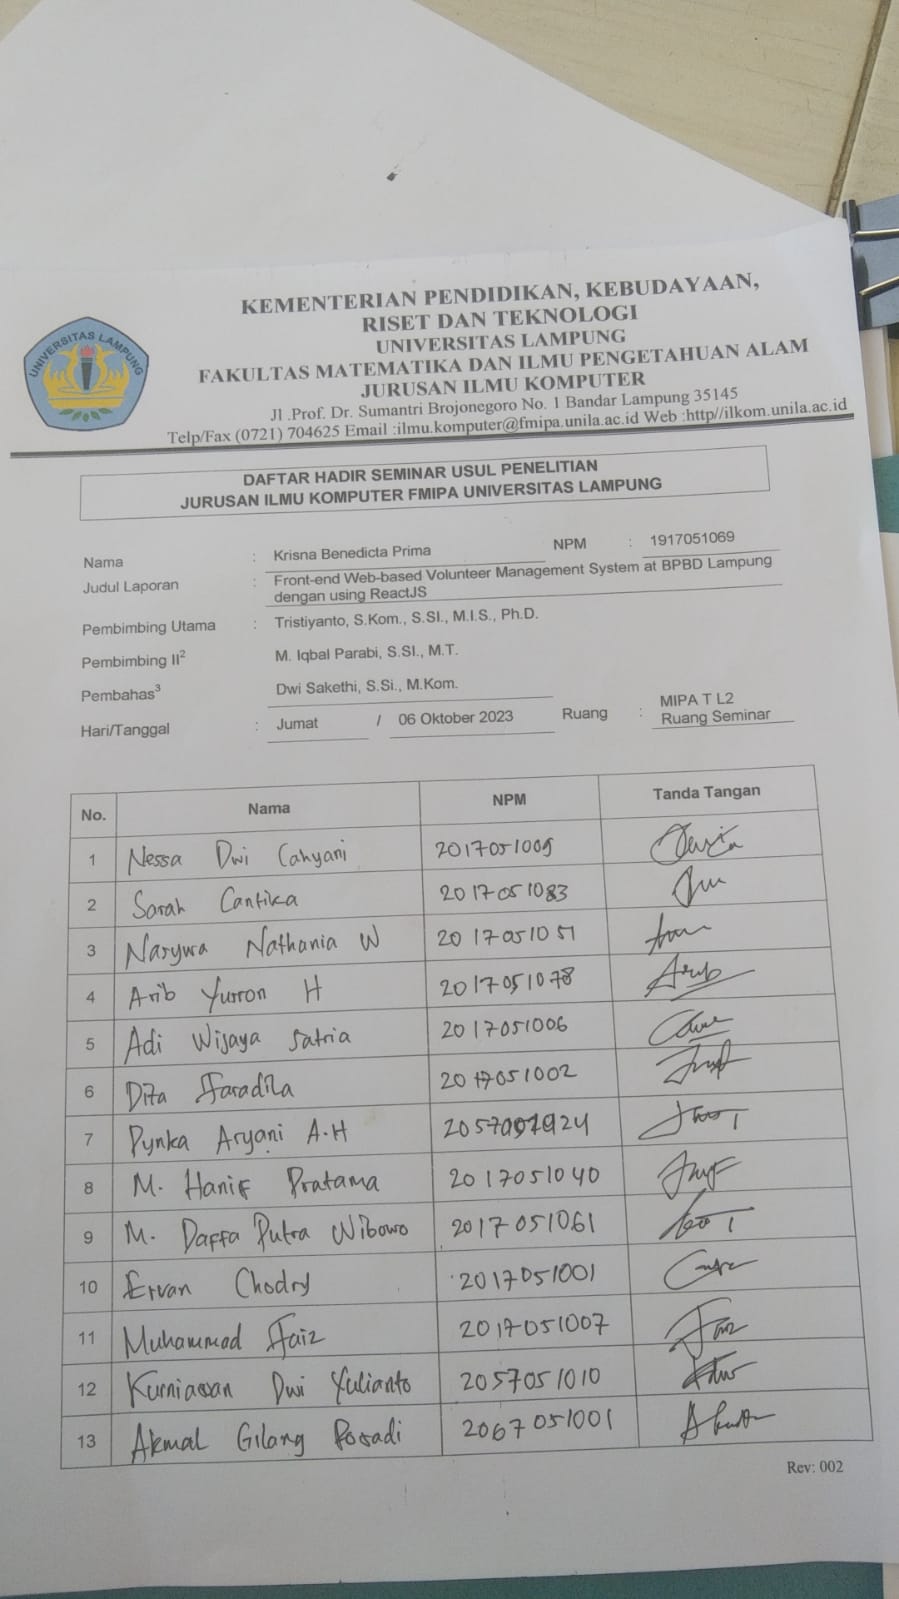 UNIVERSITAS LAMPUNG
KEMENTERIAN PENDIDIKAN, KEBUDAYAAN,
RISET DAN TEKNOLOGI
UNIVERSITAS LAMPUNG
FAKULTAS MATEMATIKA DAN ILMU PENGETAHUAN ALAM
JURUSAN ILMU KOMPUTER
Jl .Prof. Dr. Sumantri Brojonegoro No. 1 Bandar Lampung 35145
Telp/Fax (0721) 704625 Email :ilmu.komputer@fmipa.unila.ac.id Web :http//ilkom.unila.ac.id
DAFTAR HADIR SEMINAR USUL PENELITIAN
JURUSAN ILMU KOMPUTER FMIPA UNIVERSITAS LAMPUNG
Nama : Krisna Benedicta Prima NPM : 1917051069
Judul Laporan : Front-end Web-based Volunteer Management System at BPBD Lampung
dengan using ReactJS
Pembimbing Utama : Tristiyanto, S.Kom., S.SI., M.I.S., Ph.D.
Pembimbing II² : M. Iqbal Parabi, S.SI., M.T.
Pembahas³ : Dwi Sakethi, S.Si., M.Kom.
Hari/Tanggal : Jumat / 06 Oktober 2023 Ruang : MIPA T L2
Ruang Seminar
No. Nama NPM Tanda Tangan
1 Nessa Dwi Cahyani 2017051009
2 Sarah Cantika 2017051083
3 Nasywa Nathania W 2017051051
4 Arib Yusron H 2017051078
5 Adi Wijaya Satria 2017051006
6 Dita Faradila 2017051002
7 Pynka Aryani A.H
8 M. Hanif Pratama 2017051040
9 M. Daffa Putra Wibowo 2017051061
10 Ervan Chodry 2017051001
11 Muhammad Faiz 2017051007
12 Kurniawan Dwi Yulianto 2057051010
13 Akmal Gilang Posadi 2067051001
Rev: 002